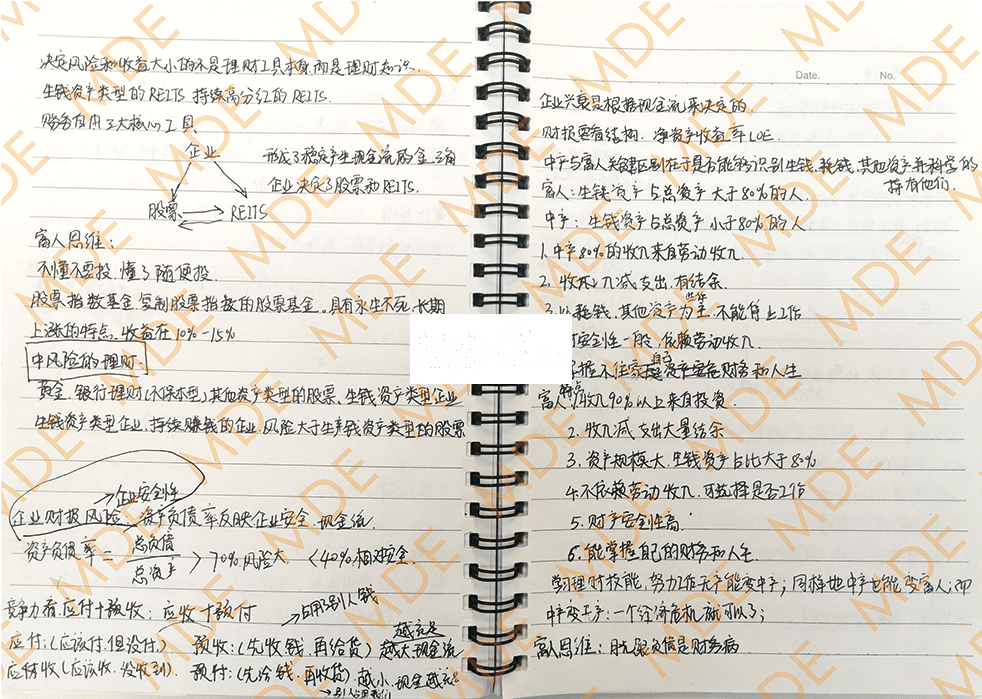 决定风险和收益大小的不是理财工具本身而是理财知识.
生钱资产类型的REITS 持续高分红的REITS.
财务自由三大核心工具
企业
形成了稳定产生现金流现金 三角
企业决定了股票和REITS.
股票 REITS
富人思维:
不懂不要投.懂了随便投.
股票指数基金.复制股票指数的股票基金.具有永生不死.长期
上涨的特点.收益在10%-15%
中风险的理财.
黄金.银行理财(不保本型)其他资产类型的股票.生钱资产类型企业
生钱资产类型企业.持续赚钱的企业.风险大于生钱资产类型的股票
→企业安全性
企业财报风险.资产负债率反映企业安全.现金流
资产负债率=总负债/总资产 >70%风险大 <40%相对安全.
竞争力看:应付+预收:应收+预付 →占用别人钱
应付:(应该付.但没付.) 预收:(先收钱.再给货) 越大.现金流越充足
应收(应该收.没收到). 预付:(先给钱.再收货).越小.现金越充足
→别人占用我们
Date. No.
企业兴衰是根据现金流来决定的.
财报要看结构.净资产收益率LOE.
中产与富人关键区别在于是否能够识别生钱.耗钱.其他资产并科学的
持有他们.
富人:生钱资产占总资产大于80%的人.
中产:生钱资产占总资产小于80%的人.
1.中产80%的收入来自劳动收入.
2.收入减支出.有结余.
3.以耗钱.其他资产为主.不能停止工作
财安全性一般.依赖劳动收入.
掌握不住家庭财务和人生
富人特点:1.收入90%以上来自投资.
2.收入减支出大量结余
3.资产规模大.生钱资产占比大于80%
4.不依赖劳动收入.可选择是否工作
5.财产安全性高.
6.能掌握自己的财务和人生
学习理财技能.努力工作无产能变中产;同样地中产也能变富人;而
中产变无产:一个经济危机就可以了;
富人思维:肤浅负债是财务病
MDE